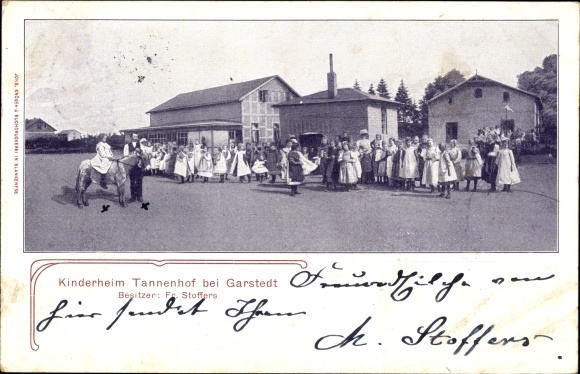 JOHS. KRÖGER'S BUCHDRUCKEREI IN BLANKENESE.
Kinderheim Tannenhof bei Garstedt
Besitzer: Fr. Stoffers
Freundliche von
hier sendet Ihnen
M. Stoffers